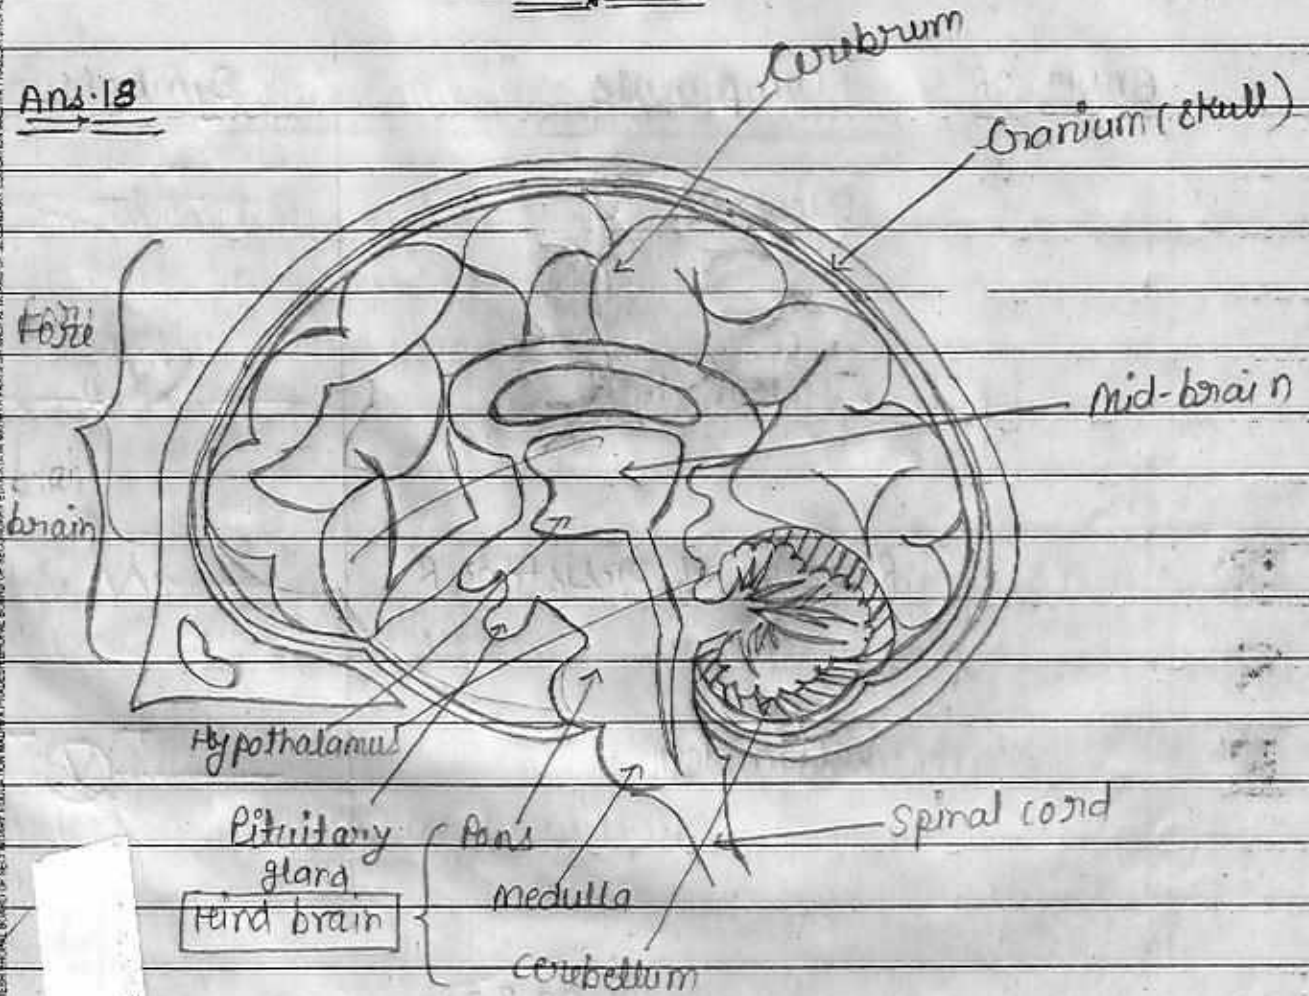 Ans.13
Cerebrum
Cranium (skull)
Fore
brain
Mid-brain
Hypothalamus
Pituitary
gland
Hind brain
Pons
Medulla
Cerebellum
Spinal cord